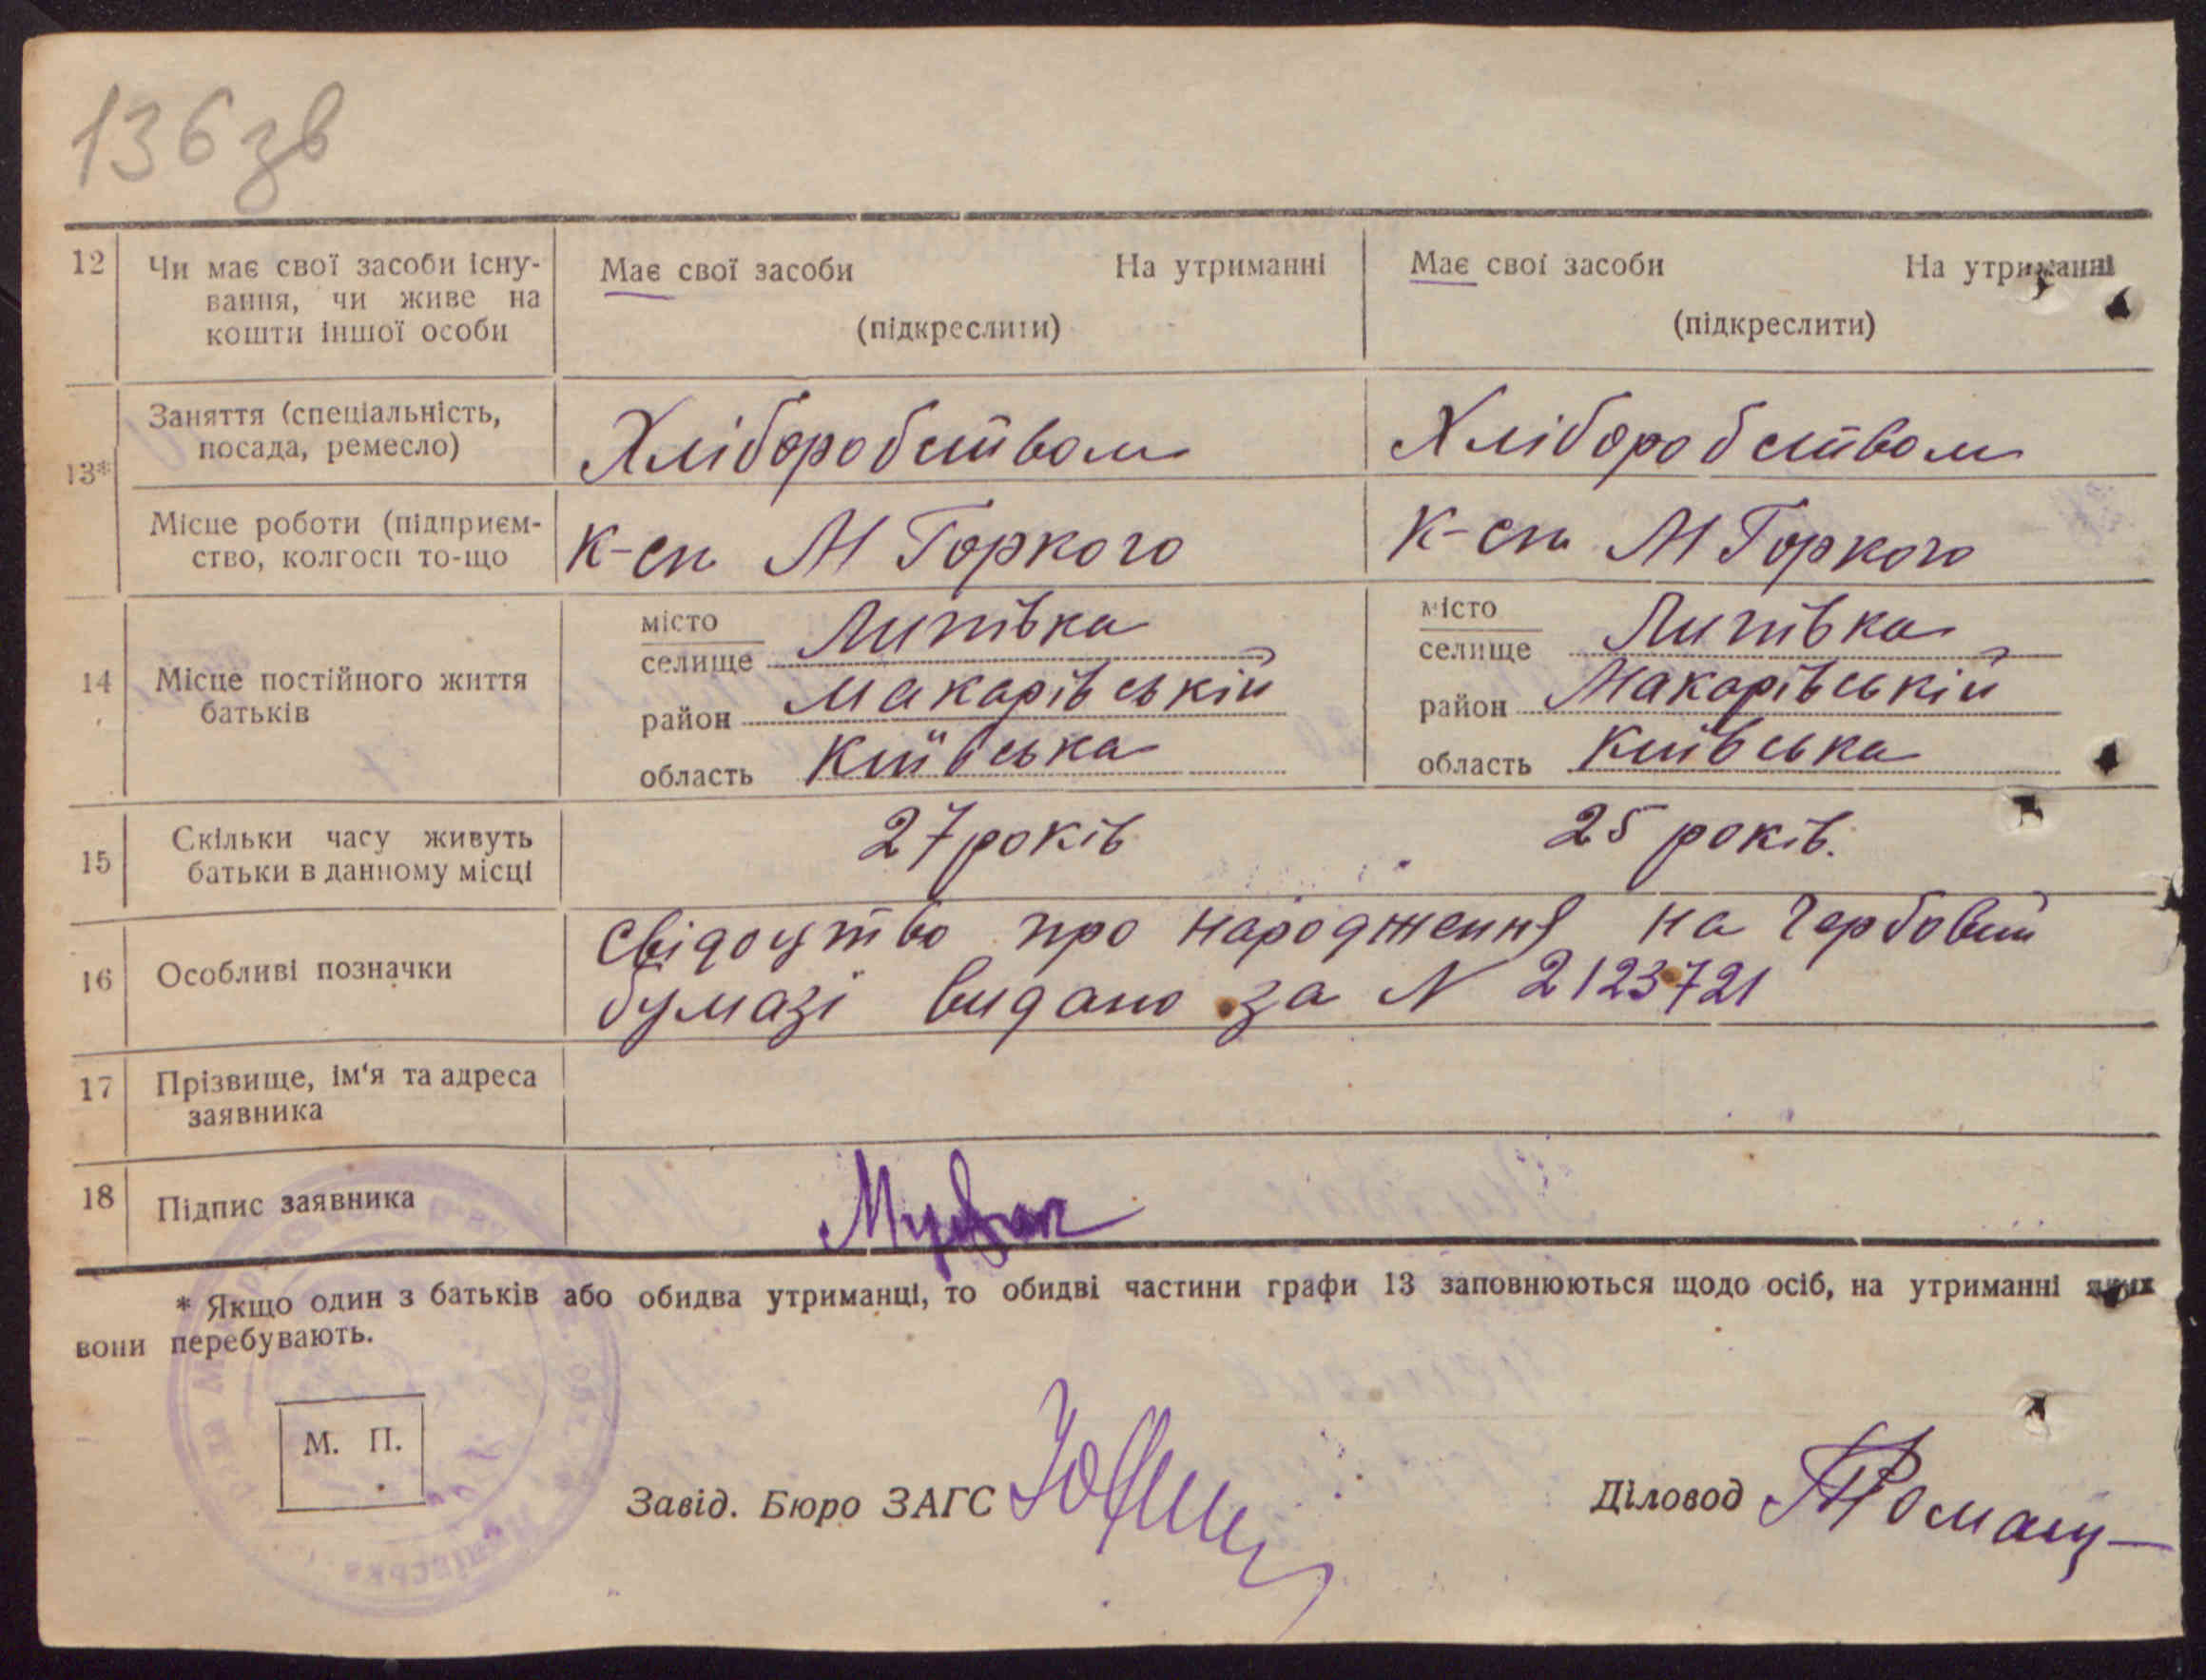 136 зв
12 Чи має свої засоби існу- Має свої засоби На утриманні Має свої засоби На утриманні
вання, чи живе на
кошти іншої особи (підкреслити) (підкреслити)
Заняття (спеціальність, Хліборобством Хліборобством
посада, ремесло)
13*
Місце роботи (підприєм- К-сп М Горкого К-сп М Горкого
ство, колгосп то-що
місто Липівка місто Липівка
селище селище
14 Місце постійного життя район Макарівській район Макарівській
батьків
область Київська область Київська
15 Скільки часу живуть 27 років 25 років.
батьки в данному місці
свідоцтво про народження на гербовий
16 Особливі позначки
бумазі видано за N 2123721
17 Прізвище, ім'я та адреса
заявника
18 Підпис заявника
* Якщо один з батьків або обидва утриманці, то обидві частини графи 13 заповнюються щодо осіб, на утриманні яких
вони перебувають.
М. П.
Завід. Бюро ЗАГС Діловод